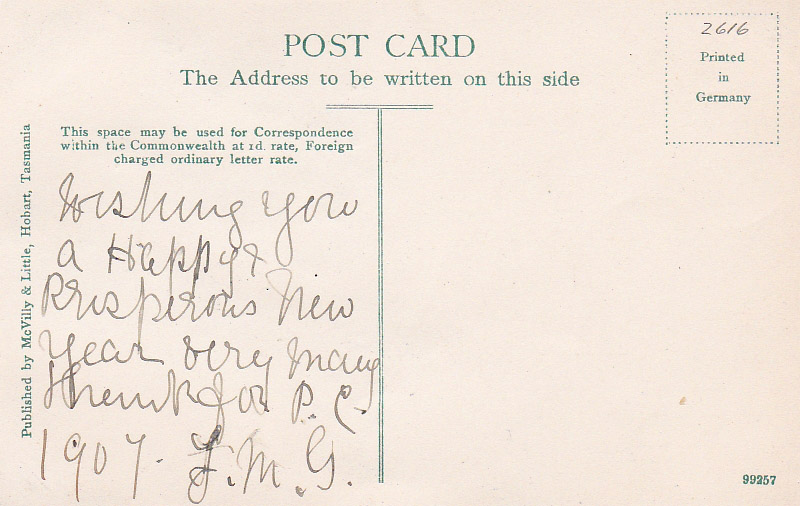 POST CARD
The Address to be written on this side
2616
Printed
in
Germany
This space may be used for Correspondence
within the Commonwealth at 1d. rate, Foreign
charged ordinary letter rate.
Published by McVilly & Little, Hobart, Tasmania
Wishing you
a Happy &
Prosperous New
Year very many
thanks for P.C.
1907. F.M.G.
99257